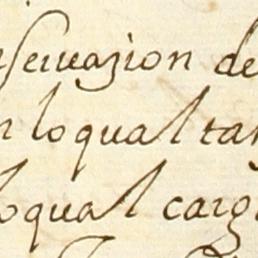 nseruazion de
n loqual tan
loqual carg